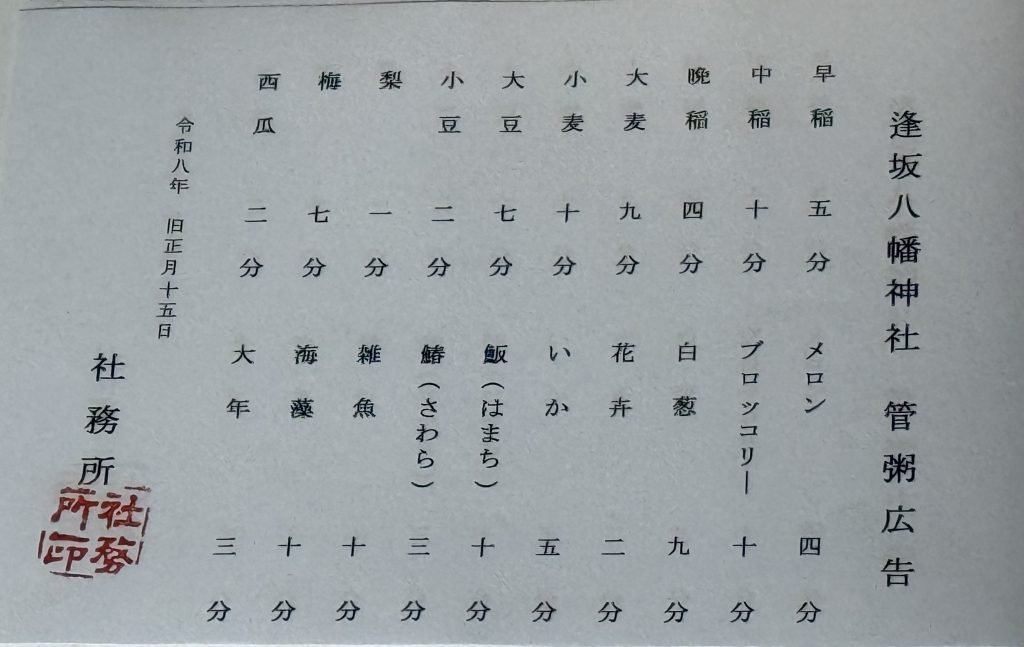 逢坂八幡神社 管粥広告
早稲 五分 メロン 四分
中稲 十分 ブロッコリー 十分
晩稲 四分 白葱 九分
大麦 九分 花卉 二分
小麦 十分 いか 五分
大豆 七分 魬(はまち) 十分
小豆 二分 鰆(さわら) 三分
梨 一分 雑魚 十分
梅 七分 海藻 十分
西瓜 二分 大年 三分
令和八年 旧正月十五日
社務所
社務所印